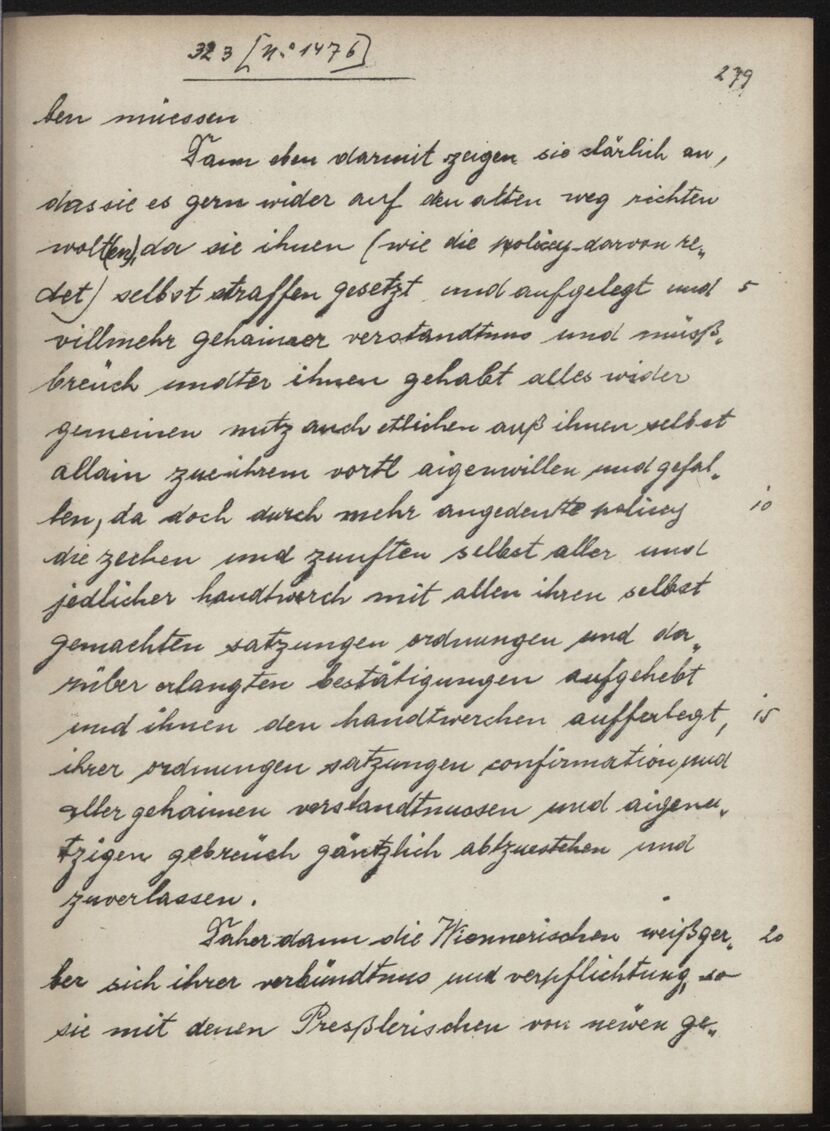 323 [N.o 1476]
279
ben müessen
Dann eben darmit zeigen sie clärlich an,
dass sie es gern wider auf den alten weg richten
wolt(en), da sie ihnen (wie die policey darvon re„
det) selbst straffen gesetzt und aufgelegt und 5
villmehr gehaimer verstandtnus und müsß„
breüch undter ihnen gehabt alles wider
gemeinen nutz auch etlichen auß ihnen selbst
allain zue ihrem vortl aigenwillen und gefal„
len, da doch durch mehr angedeutte policey 10
die zechen und zunften selbst aller und
jedlicher handtwerch mit allen ihren selbst
gemachten satzungen ordnungen und da„
rüber erlangten bestätigungen aufgehebt
und ihnen den handtwerchen aufferlegt, 15
ihrer ordnungen satzungen confirmation und
aller gehaimen verstandtnussen und aigenu„
tzigen gebreüch gäntzlich abtzuestehen und
zuverlassen.
Daher dann die Wiennerischen weißger„ 20
ber sich ihrer verbündtnus und verpflichtung, so
sie mit denen Presßlerischen von neuen ge„